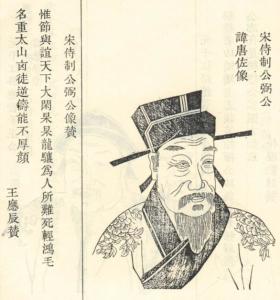 宋侍制公弼公
諱唐佐像
宋侍制公弼公像贊
惟節與誼天下大閑杲杲龍驤為人所難死輕鴻毛
名重太山卤徒逆儔能不厚顏
王應辰贊